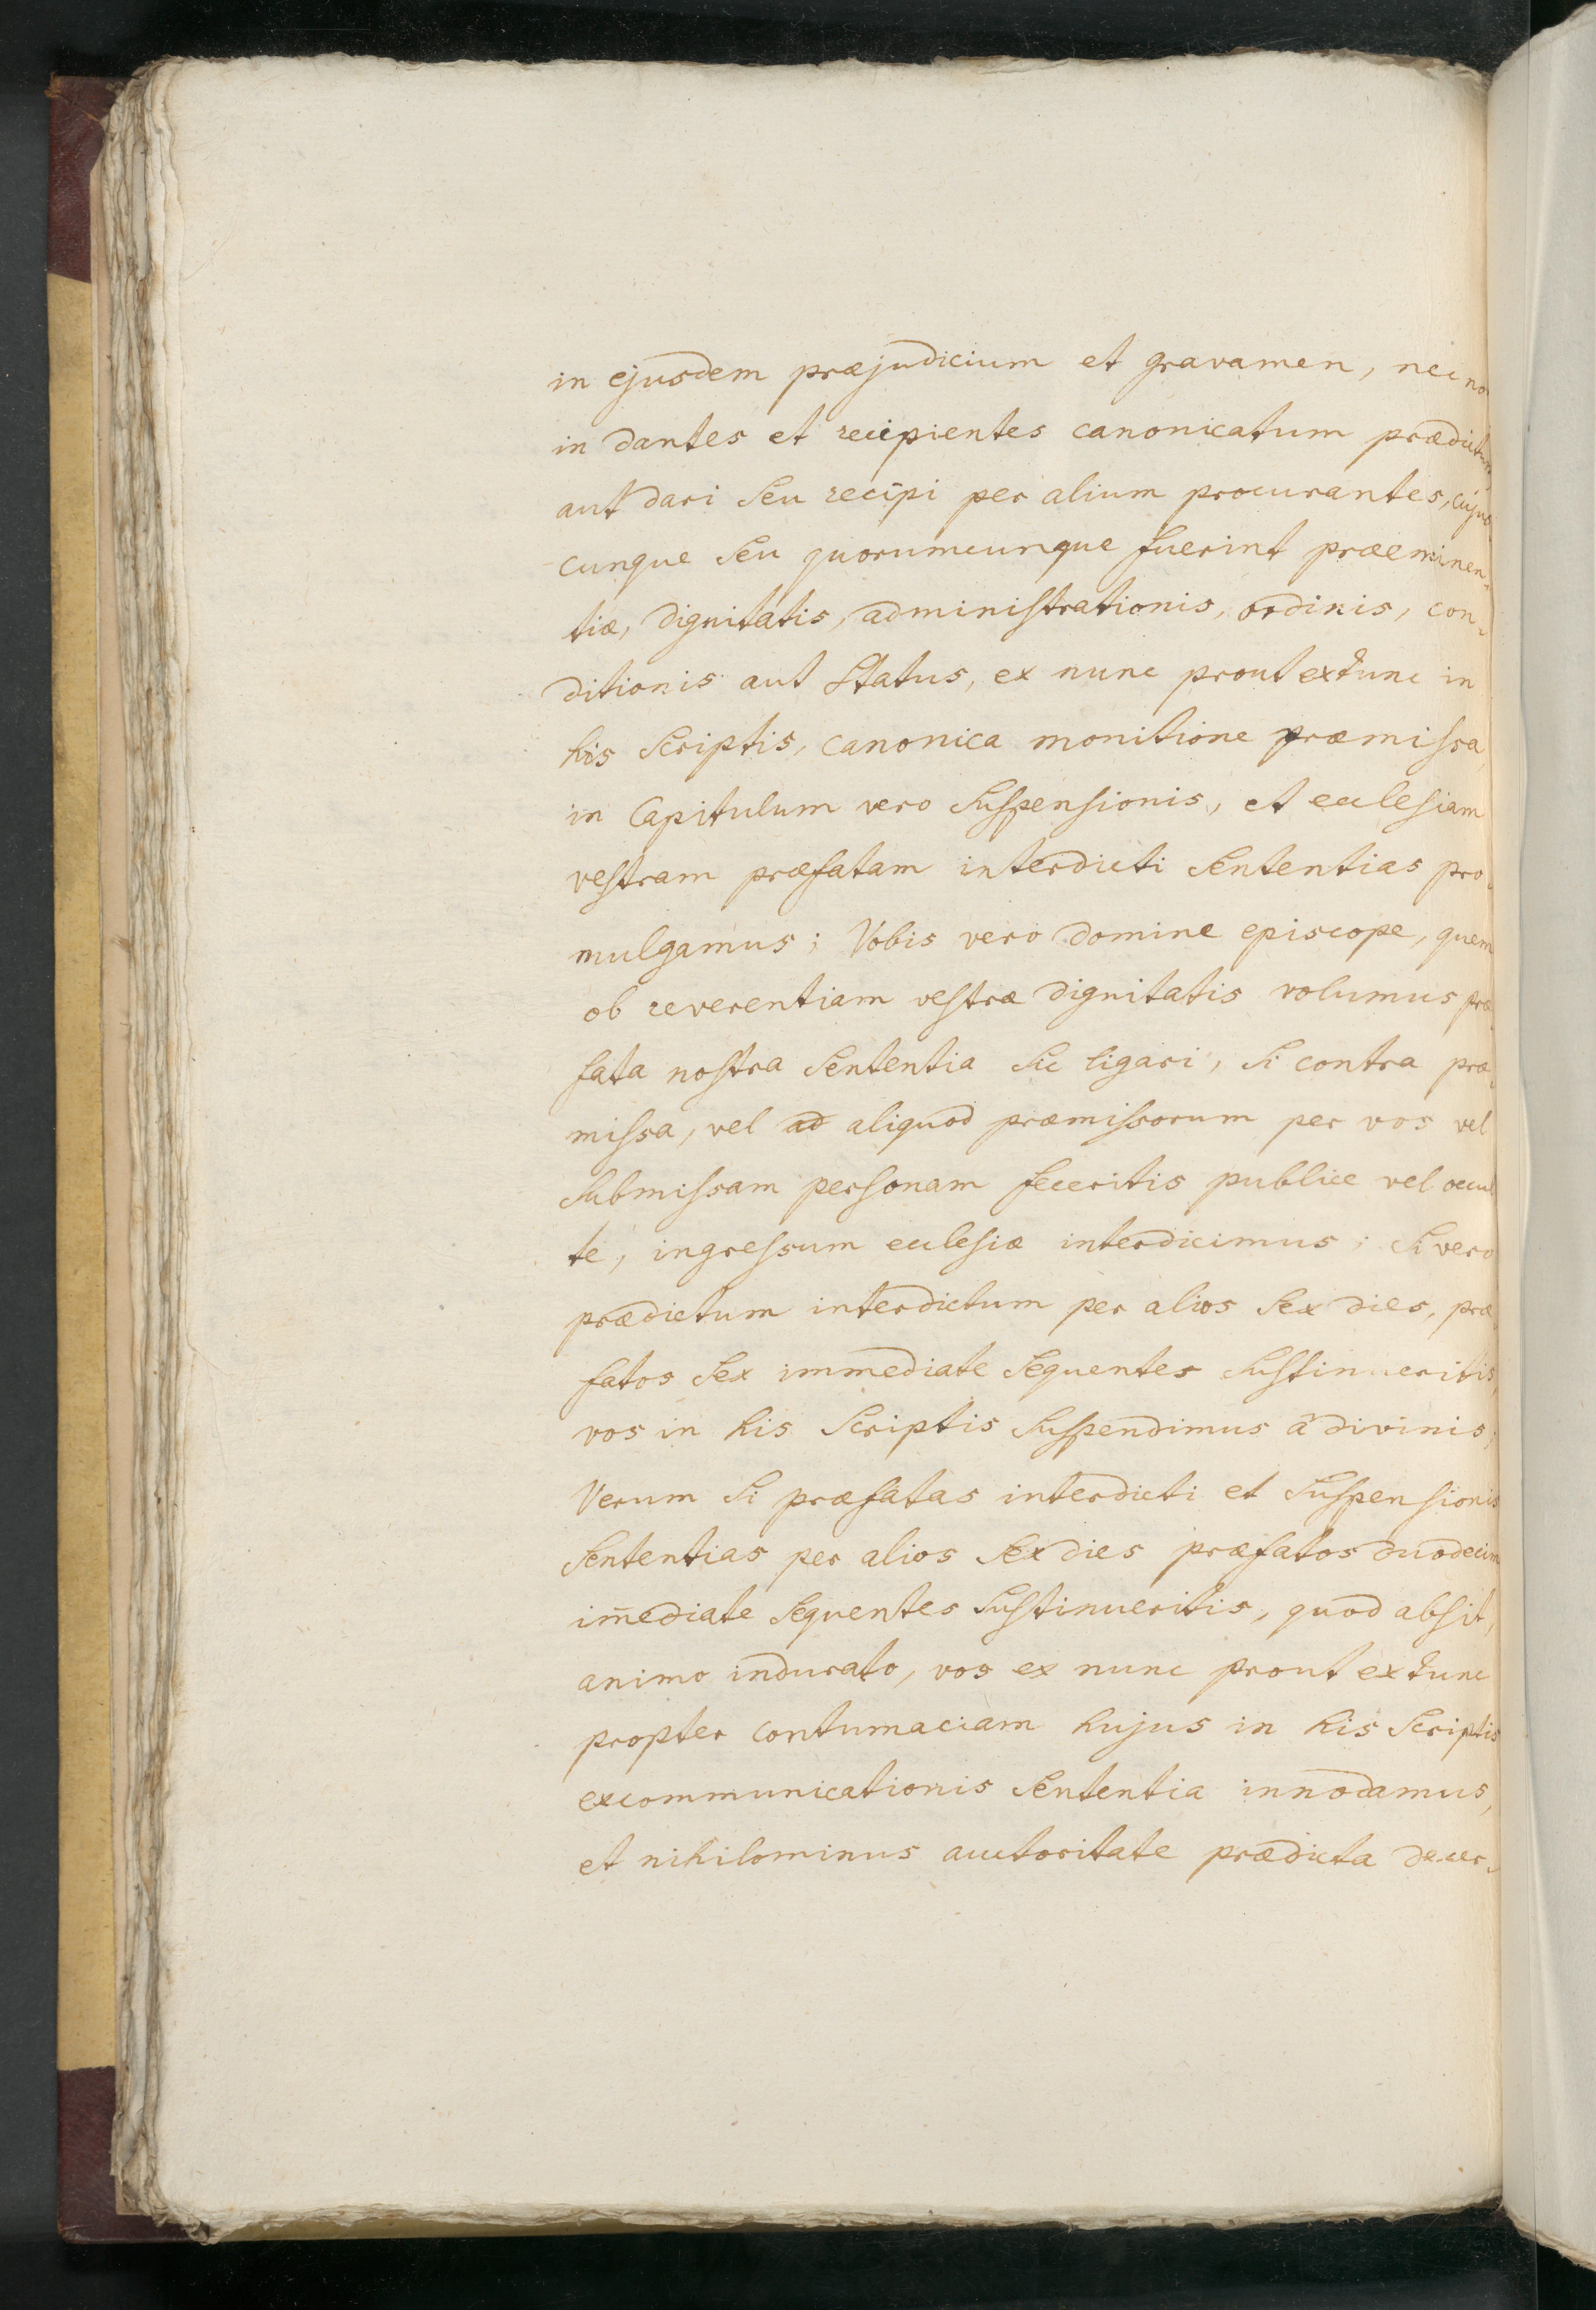 in ejusdem præjudicium et gravamen, nec no
in dantes et recipientes canonicatum prædictum
aut dari seu recipi per alium procurantes, cujus
cunque seu quorumcunque fuerint præeminen-
tiæ, dignitatis, administrationis, ordinis, con-
ditionis aut status, ex nunc prout ex tunc in
his scriptis, canonica monitione præmissa,
in Capitulum vero suspensionis, et ecclesiam
vestram præfatam interdicti sententias pro-
mulgamus; Vobis vero domine episcope, quem
ob reverentiam vestræ dignitatis volumus præ-
fata nostra sententia sic ligari, si contra præ-
missa, vel ad aliquod præmissorum per vos vel
submissam personam feceritis publice vel occul
te, ingressum ecclesiæ interdicimus; si vero
prædictum interdictum per alios sex dies, præ-
fatos sex immediate sequentes sustinueritis,
vos in his scriptis suspendimus a divinis;
Verum si præfatas interdicti et suspensionis
sententias per alios sex dies præfatos duodecim
im̄ediate sequentes sustinueritis, quod absit,
animo indurato, vos ex nunc prout ex tunc
propter contumaciam hujus in his scriptis
excommunicationis sententia innodamus,
et nihilominus auctoritate prædicta decer-